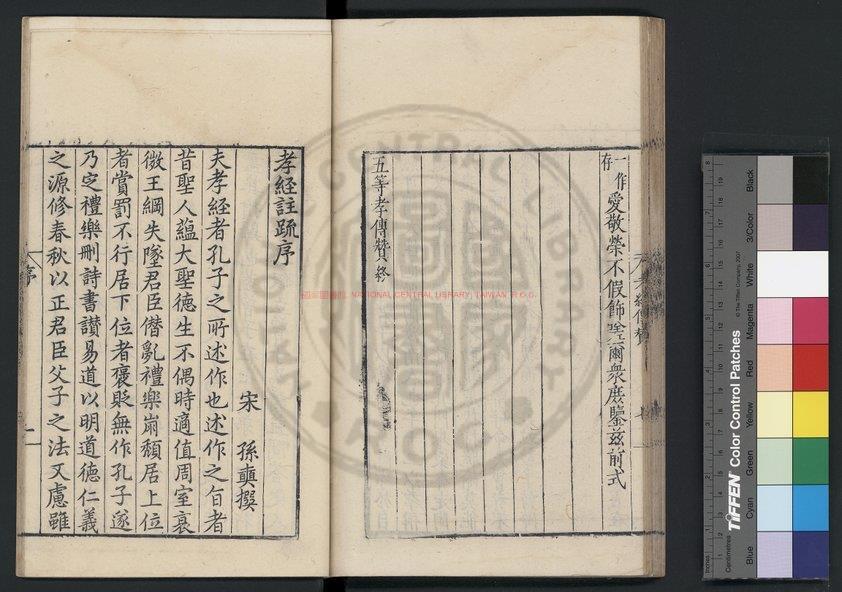 一作存愛敬榮不假飾嗟爾衆庶鑒兹前式
五等孝傳贊終
孝經註疏序
宋 孫奭撰
夫孝經者孔子之所述作也述作之旨者
昔聖人蘊大聖德生不偶時適值周室衰
微王綱失墜君臣僭亂禮樂崩頹居上位
者賞罰不行居下位者褒貶無作孔子遂
乃定禮樂刪詩書讃易道以明道德仁義
之源修春秋以正君臣父子之法又慮雖
序
NATIONAL CENTRAL LIBRARY, TAIWAN R.O.C.
TIFFEN Color Control Patches
© The Tiffen Company, 2007
Centimetres
Inches
Blue
Cyan
Green
Yellow
Red
Magenta
White
3/Color
Black